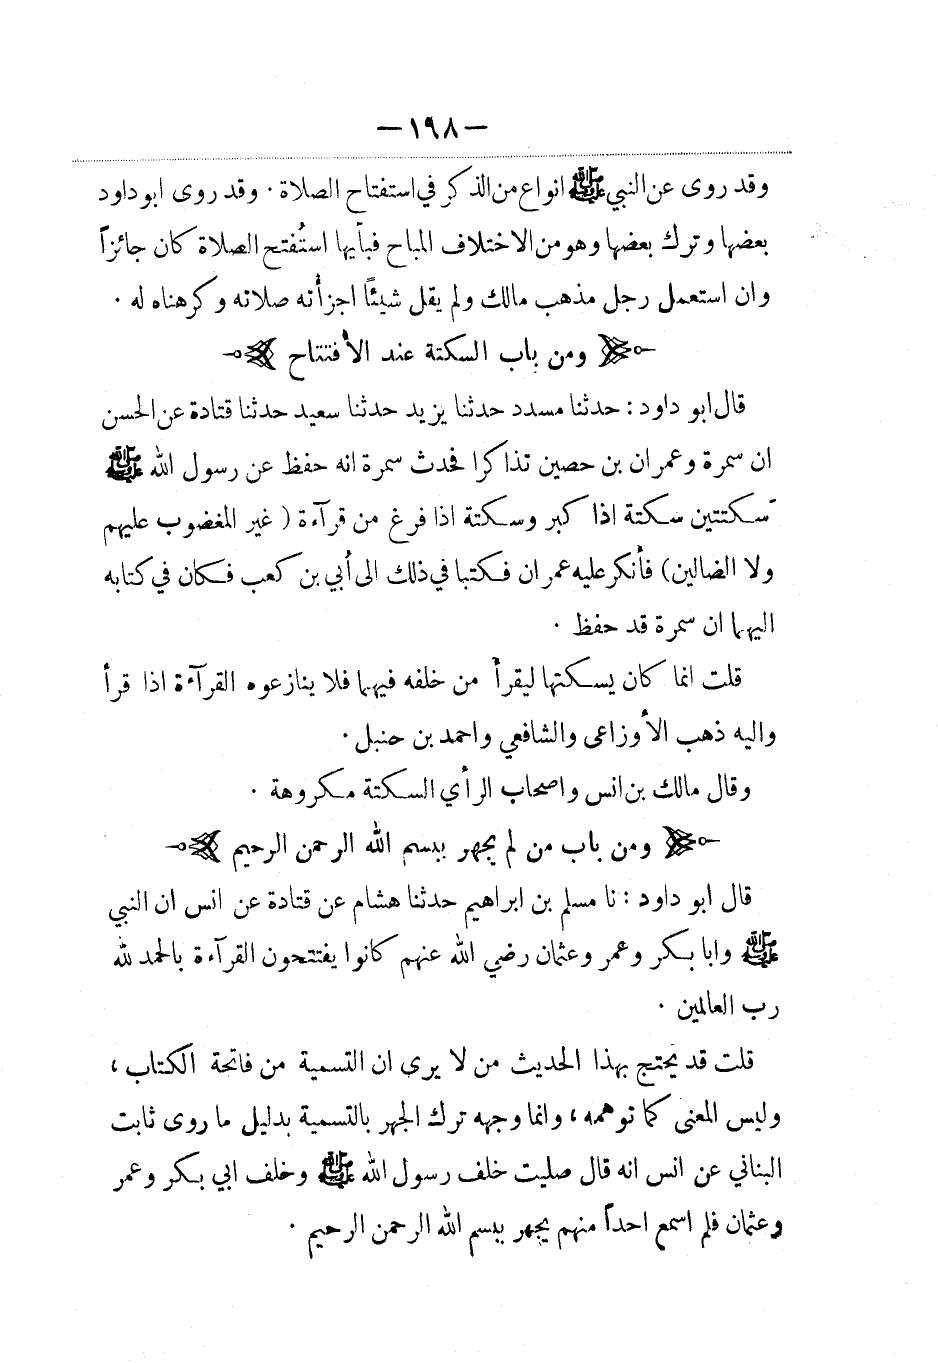 — ١٩٨ —
وقد روى عن النبي ﷺ انواع من الذكر في استفتاح الصلاة . وقد روى ابو داود
بعضها وترك بعضها وهو من الاختلاف المباح فبأيها استُفتح الصلاة كان جائزاً
وان استعمل رجل مذهب مالك ولم يقل شيئًا اجزأته صلاته وكرهناه له .
ومن باب السكتة عند الأفتتاح
قال ابو داود : حدثنا مسدد حدثنا يزيد حدثنا سعيد حدثنا قتادة عن الحسن
ان سمرة وعمران بن حصين تذاكرا فحدث سمرة انه حفظ عن رسول الله ﷺ
سكتتين سكتة اذا كبر وسكتة اذا فرغ من قرآءة ( غير المغضوب عليهم
ولا الضالين) فأنكر عليه عمران فكتبا في ذلك الى أبي بن كعب فكان في كتابه
اليهما ان سمرة قد حفظ .
قلت انما كان يسكتها ليقرأ من خلفه فيهما فلا ينازعوه القرآءة اذا قرأ
واليه ذهب الأوزاعى والشافعي واحمد بن حنبل .
وقال مالك بن انس واصحاب الرأي السكتة مكروهة .
ومن باب من لم يجهر ببسم الله الرحمن الرحيم
قال ابو داود : نا مسلم بن ابراهيم حدثنا هشام عن قتادة عن انس ان النبي
ﷺ وابا بكر وعمر وعثمان رضي الله عنهم كانوا يفتتحون القرآءة بالحمد لله
رب العالمين .
قلت قد يحتج بهذا الحديث من لا يرى ان التسمية من فاتحة الكتاب ،
وليس المعنى كما توهمه ، وانما وجهه ترك الجهر بالتسمية بدليل ما روى ثابت
البناني عن انس انه قال صليت خلف رسول الله ﷺ وخلف ابي بكر وعمر
وعثمان فلم اسمع احداً منهم يجهر ببسم الله الرحمن الرحيم .